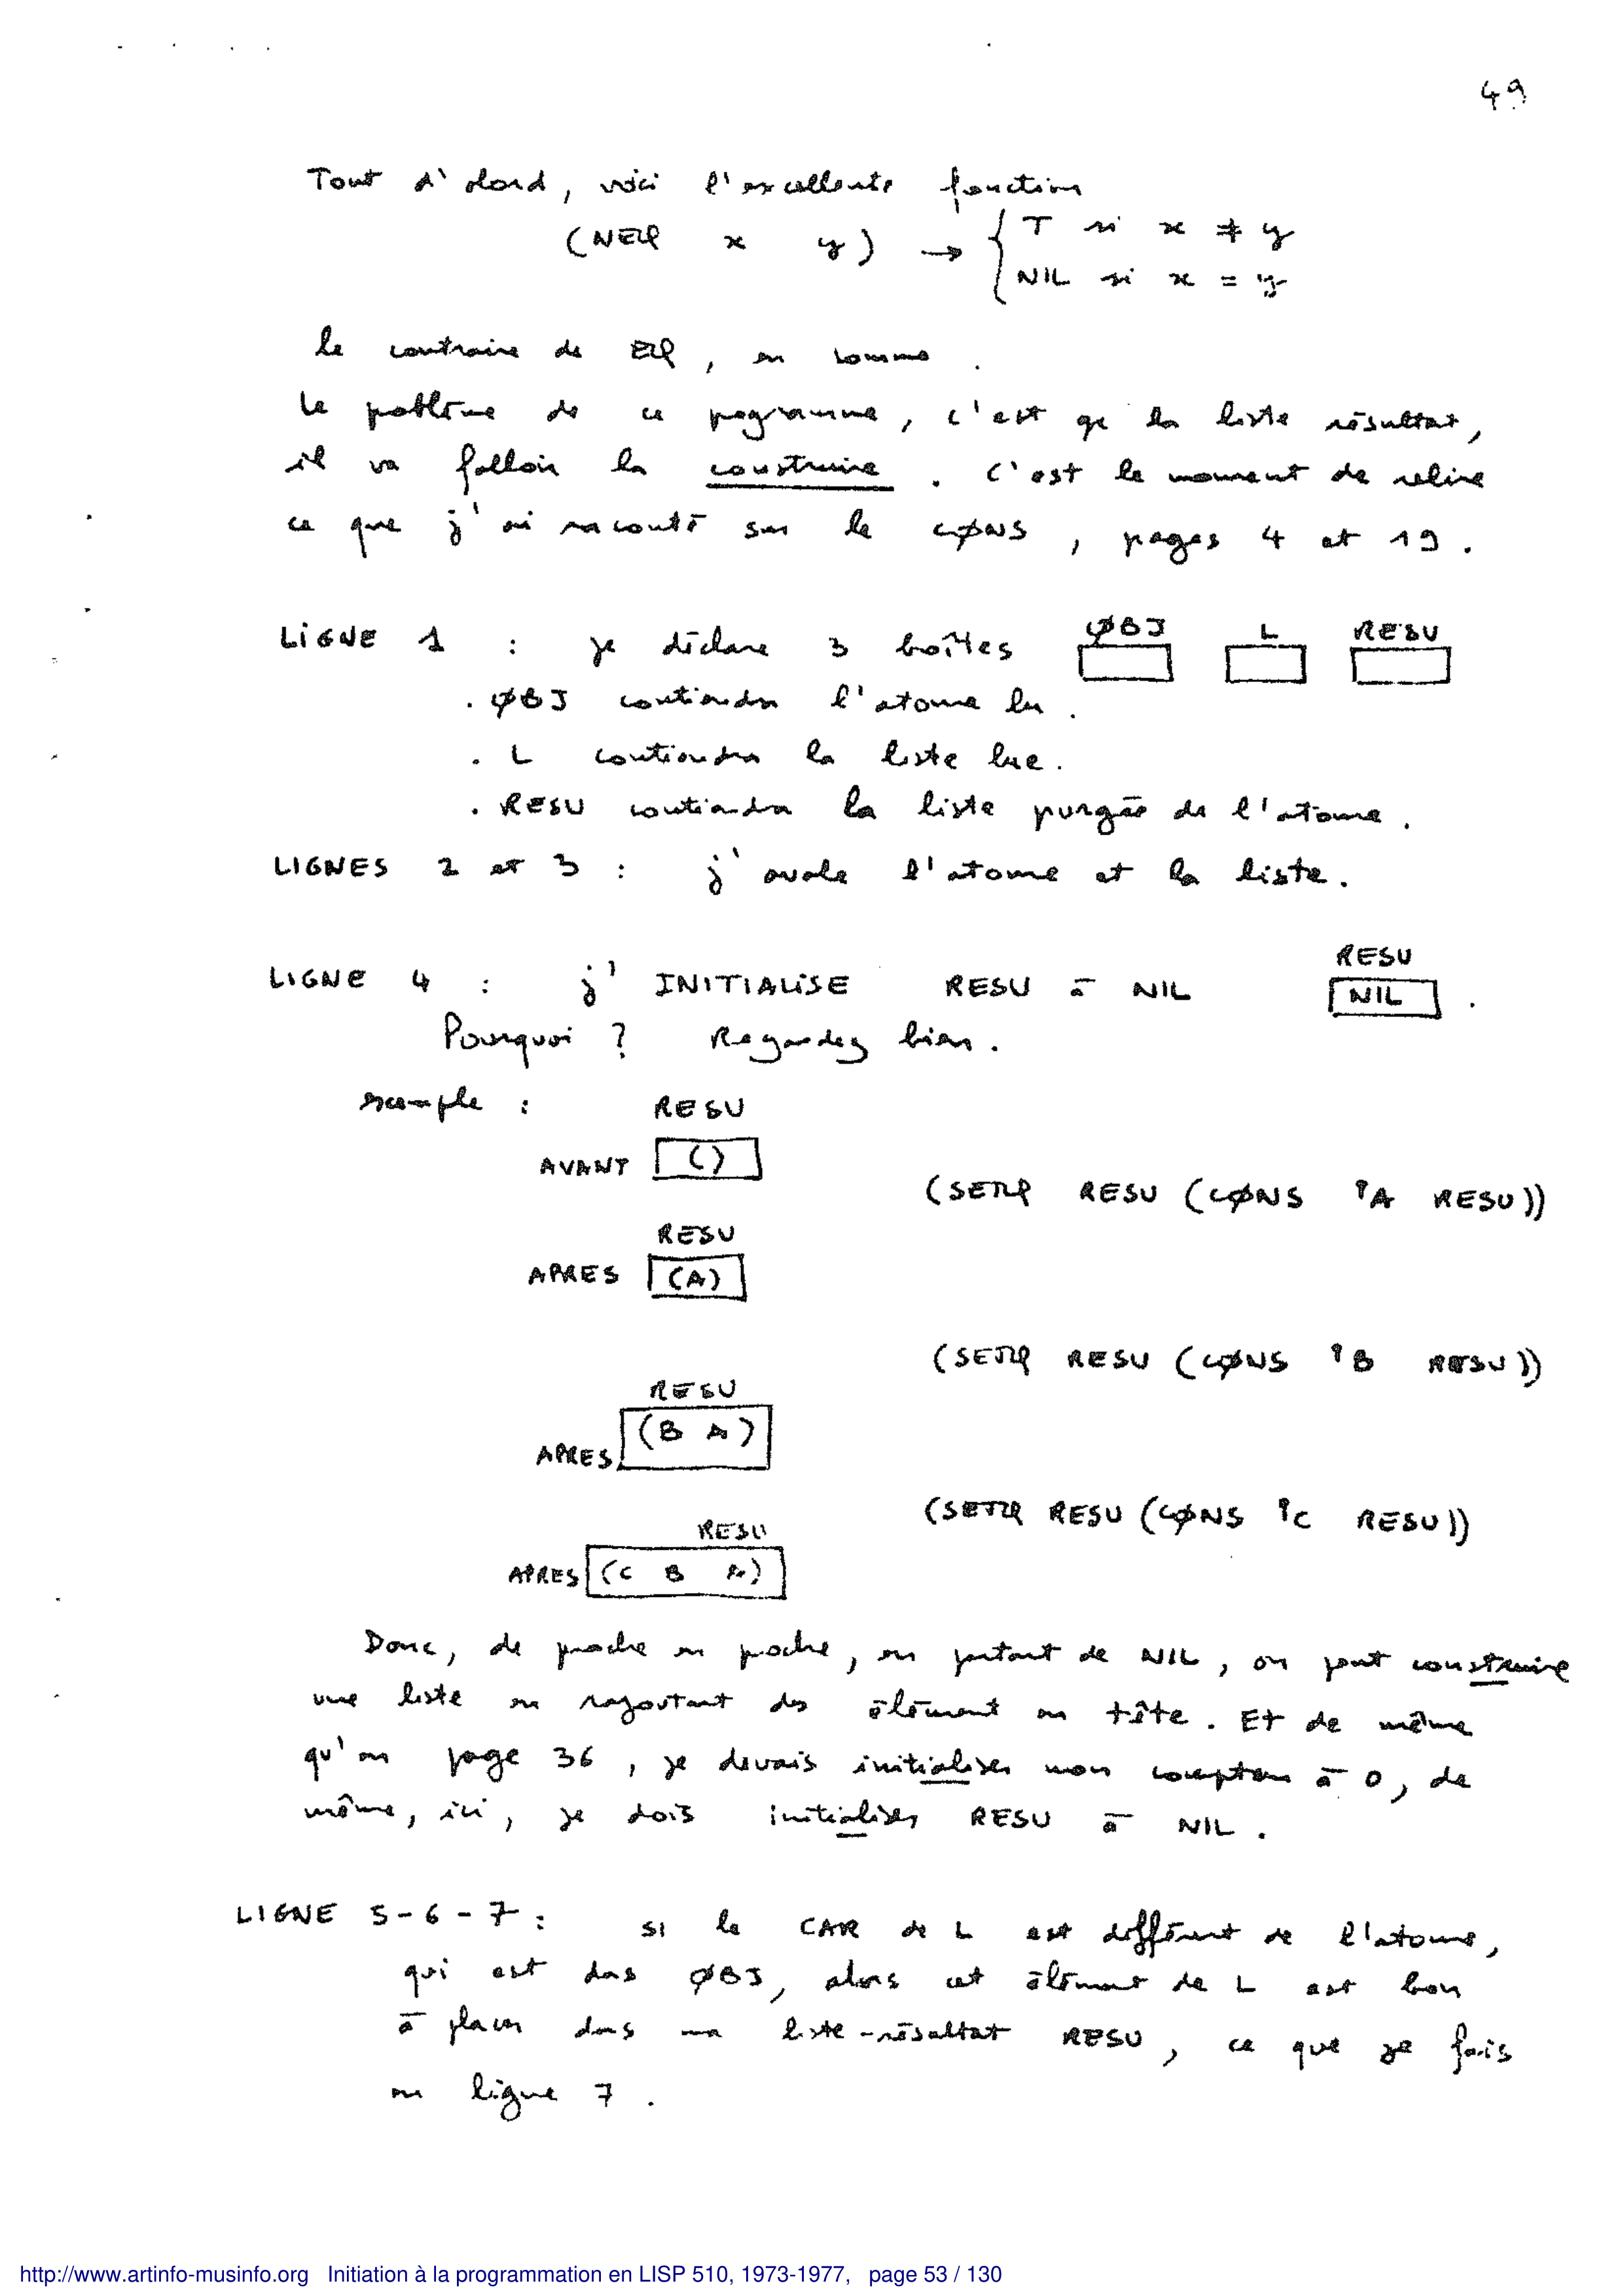 49
Tout d'abord, voici l'excellente fonction
(NEQ x y) → { T si x ≠ y
NIL si x = y
le contraire de EQ, en somme.
Le problème de ce programme, c'est que la liste résultat,
il va falloir la construire. C'est le moment de relire
ce que j'ai raconté sur le CØNS, pages 4 et 19.
LIGNE 1 : je déclare 3 boîtes ØBJ L RESU
. ØBJ contiendra l'atome lu.
. L contiendra la liste lue.
. RESU contiendra la liste purgée de l'atome.
LIGNES 2 et 3 : j'avale l'atome et la liste.
RESU
LIGNE 4 : j'INITIALISE RESU à NIL NIL .
Pourquoi ? Regardez bien.
exemple : RESU
AVANT ()
(SETQ RESU (CØNS 'A RESU))
RESU
APRES (A)
(SETQ RESU (CØNS 'B RESU))
RESU
APRES (B A)
(SETQ RESU (CØNS 'C RESU))
RESU
APRES (C B A)
Donc, de proche en proche, en partant de NIL, on peut construire
une liste en rajoutant des élément en tête. Et de même
qu'en page 36, je devais initialiser mon compteur à 0, de
même, ici, je dois initialiser RESU à NIL.
LIGNE 5-6-7 : SI le CAR de L est différent de l'atome,
qui est dans ØBJ, alors cet élément de L est bon
à placer dans ma liste-résultat RESU, ce que je fais
en ligne 7.
http://www.artinfo-musinfo.org Initiation à la programmation en LISP 510, 1973-1977, page 53 / 130